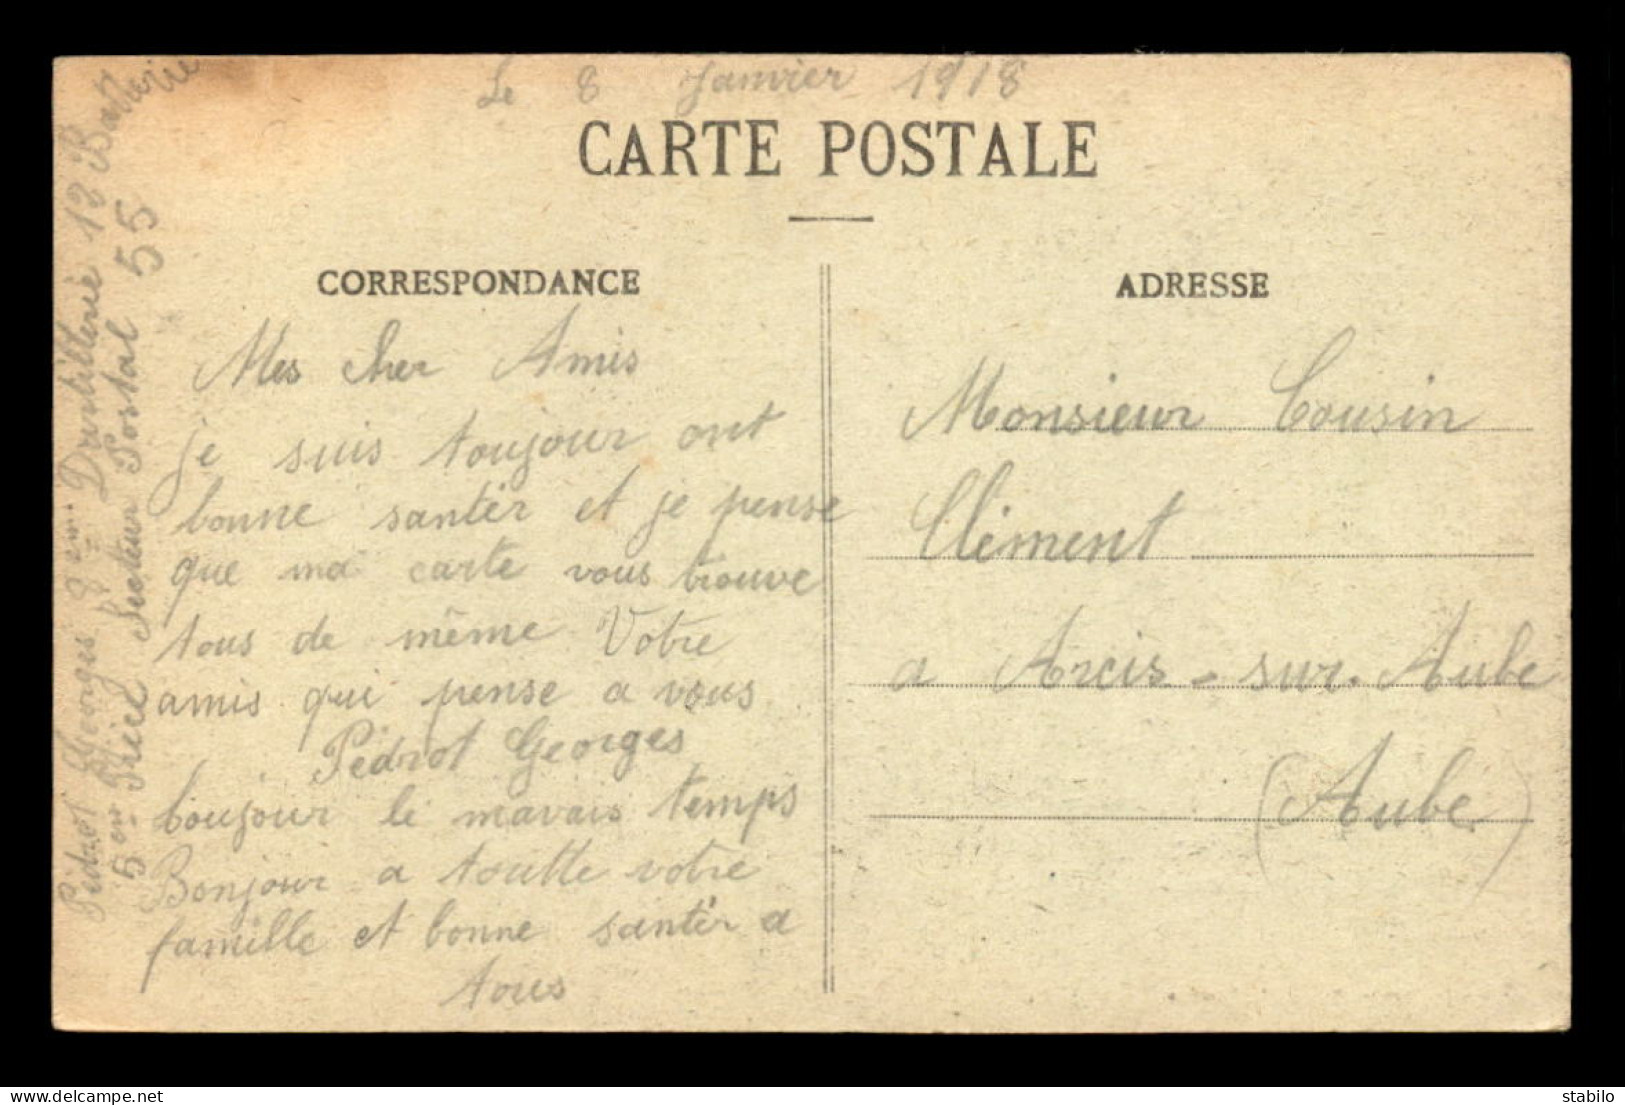 Le 8 Janvier 1918
CARTE POSTALE
CORRESPONDANCE
Mes cher Amis
je suis toujour ont
bonne santér et je pense
que ma carte vous trouve
tous de même Votre
amis qui pense a vous
Pédrot Georges
boujour le mavais temps
Bonjour a toutte votre
famille et bonne santér a
tous
Pédrot Georges 8 em Dartillerie 12 Batterie
5 em Pièce Secteur Postal 55
ADRESSE
Monsieur Cousin
Clément
a Arcis-sur-Aube
(Aube)
stabilo
delcampe.net